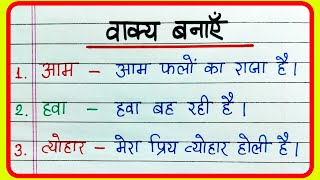 वाक्य बनाएँ
1. आम – आम फलों का राजा है।
2. हवा – हवा बह रही है।
3. त्योहार – मेरा प्रिय त्योहार होली है।